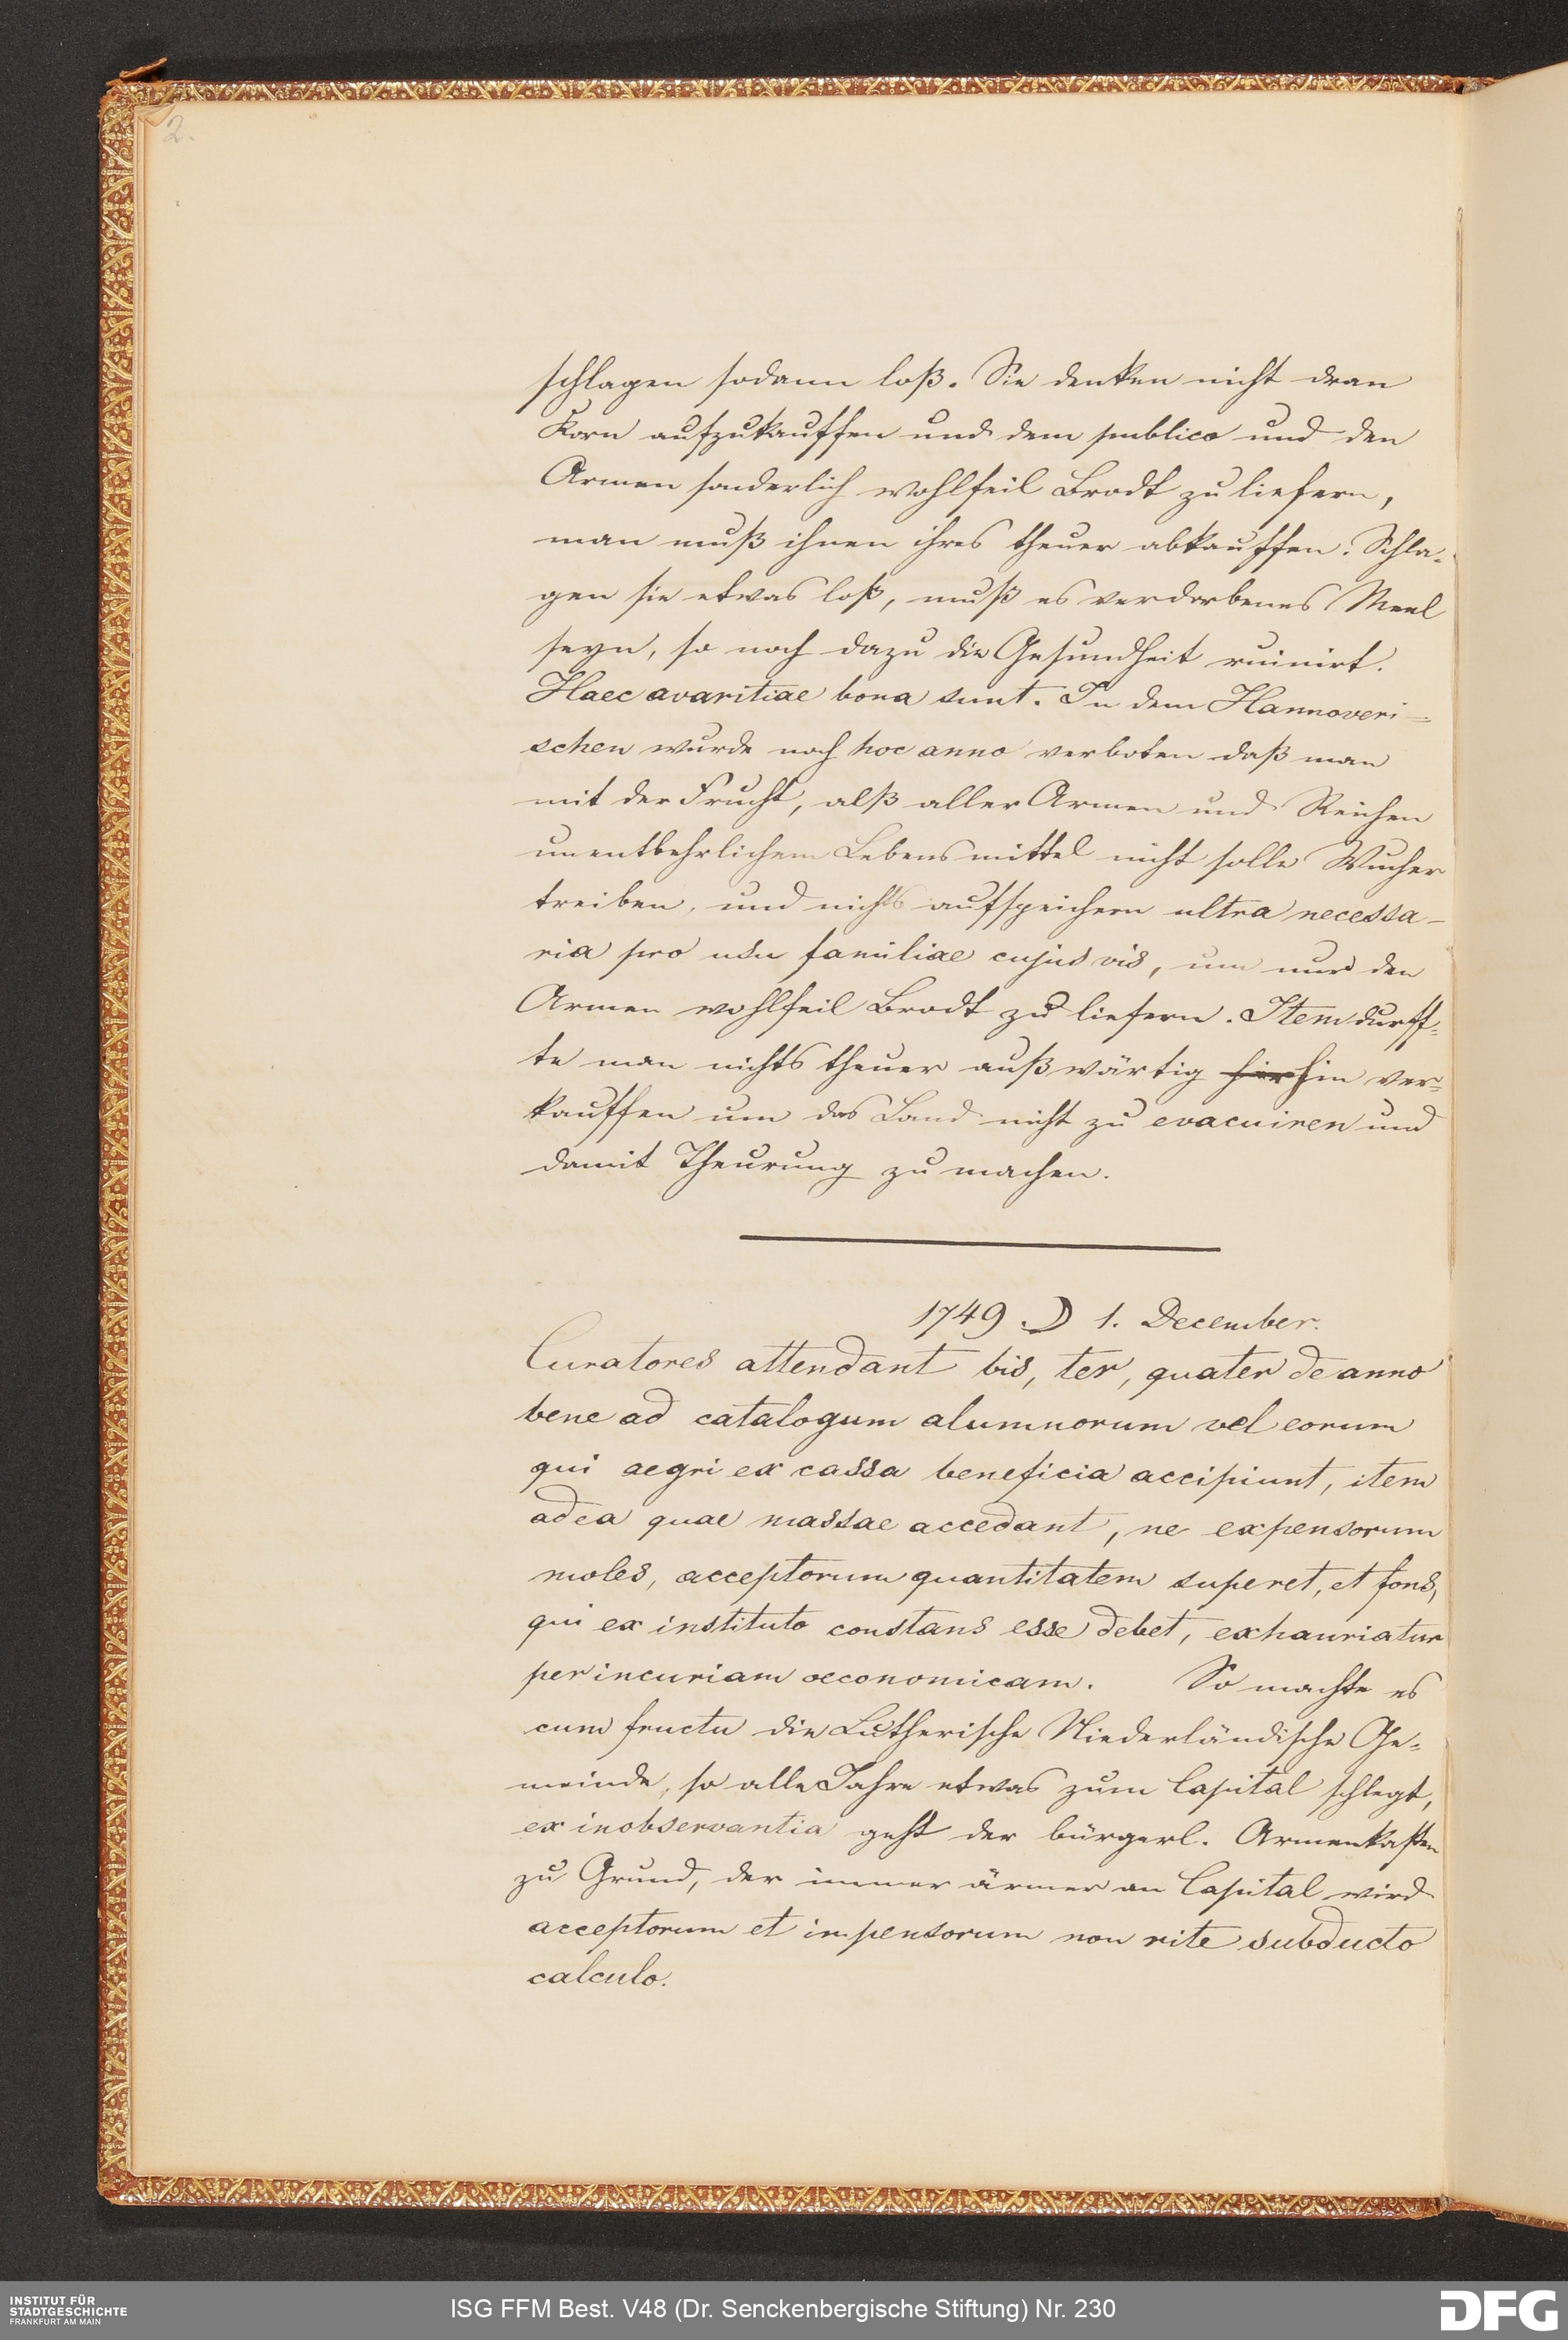 2.
schlagen sodann loß. Sie denken nicht dran
Korn aufzukauffen und dem publico und den
Armen sonderlich wohlfeil Brodt zu liefern,
man muß ihnen ihres theuer abkauffen. Schla-
gen sie etwas loß, muß es verdorbenes Meel
seyn, so noch dazu die Gesundheit ruinirt.
Haec avaritiae bona sunt. In dem Hannoveri=
schen wurde noch hoc anno verboten daß man
mit der Frucht, alß aller Armen und Reichen
unentbehrlichem Lebensmittel nicht solle Wucher
treiben, und nichts aufspeichern ultra necessa-
ria pro usu familiae cujus vis, um nur den
Armen wohlfeil Brodt zu liefern. Item durff=
te man nichts theuer außwärtig hin ver=
kauffen um das Land nicht zu evacuiren und
damit Theurung zu machen.
1749. ☽ 1. December.
Curatores attendant bis, ter, quater de anno
bene ad catalogum alumnorum vel eorum
qui aegri ex cassa beneficia accipiunt, item
ad ea quae massae accedant, ne expensorum
moles, acceptorum quantitatem superet, et fons,
qui ex instituto constans esse debet, exhauriatur
per incuriam oeconomicam. So machte es
cum fructu die Lutherische Niederländische Ge=
meinde, so alle Jahre etwas zum Capital schlegt,
ex inobservantia geht der bürgerl. Armenkasten
zu Grund, der immer ärmer an Capital wird
acceptorum et impensorum non rite subducto
calculo.
INSTITUT FÜR
STADTGESCHICHTE
FRANKFURT AM MAIN
ISG FFM Best. V48 (Dr. Senckenbergische Stiftung) Nr. 230
DFG